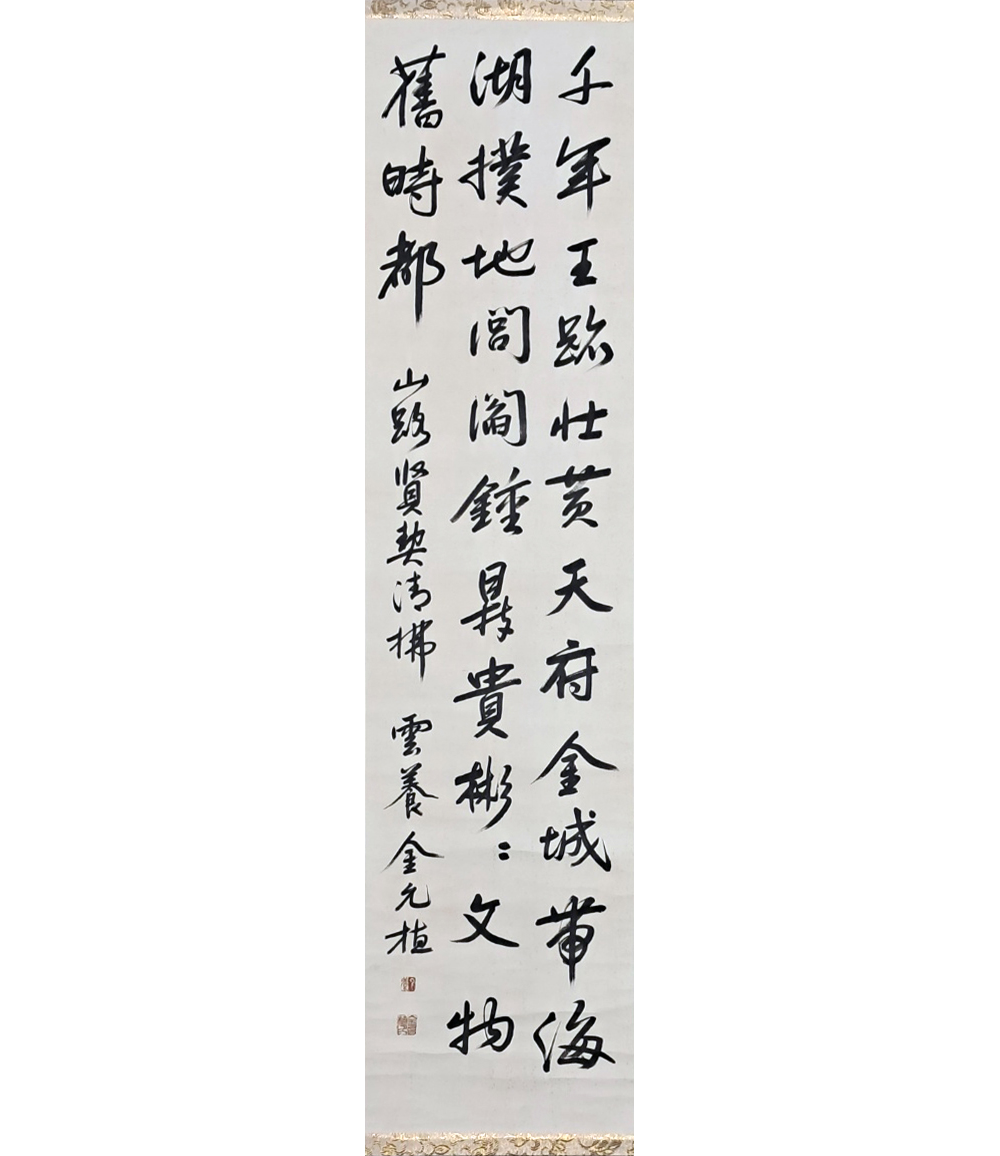 千年王跡壯黃天府金城帶海
湖撲地閭閻鍾鼎貴彬〻文物
舊時都
山路賢契清拂 雲養金允植